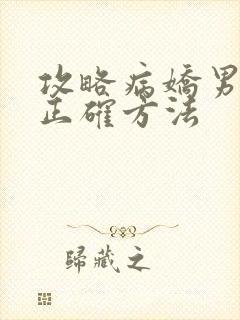 攻略病嬌男
正確方法
歸藏之